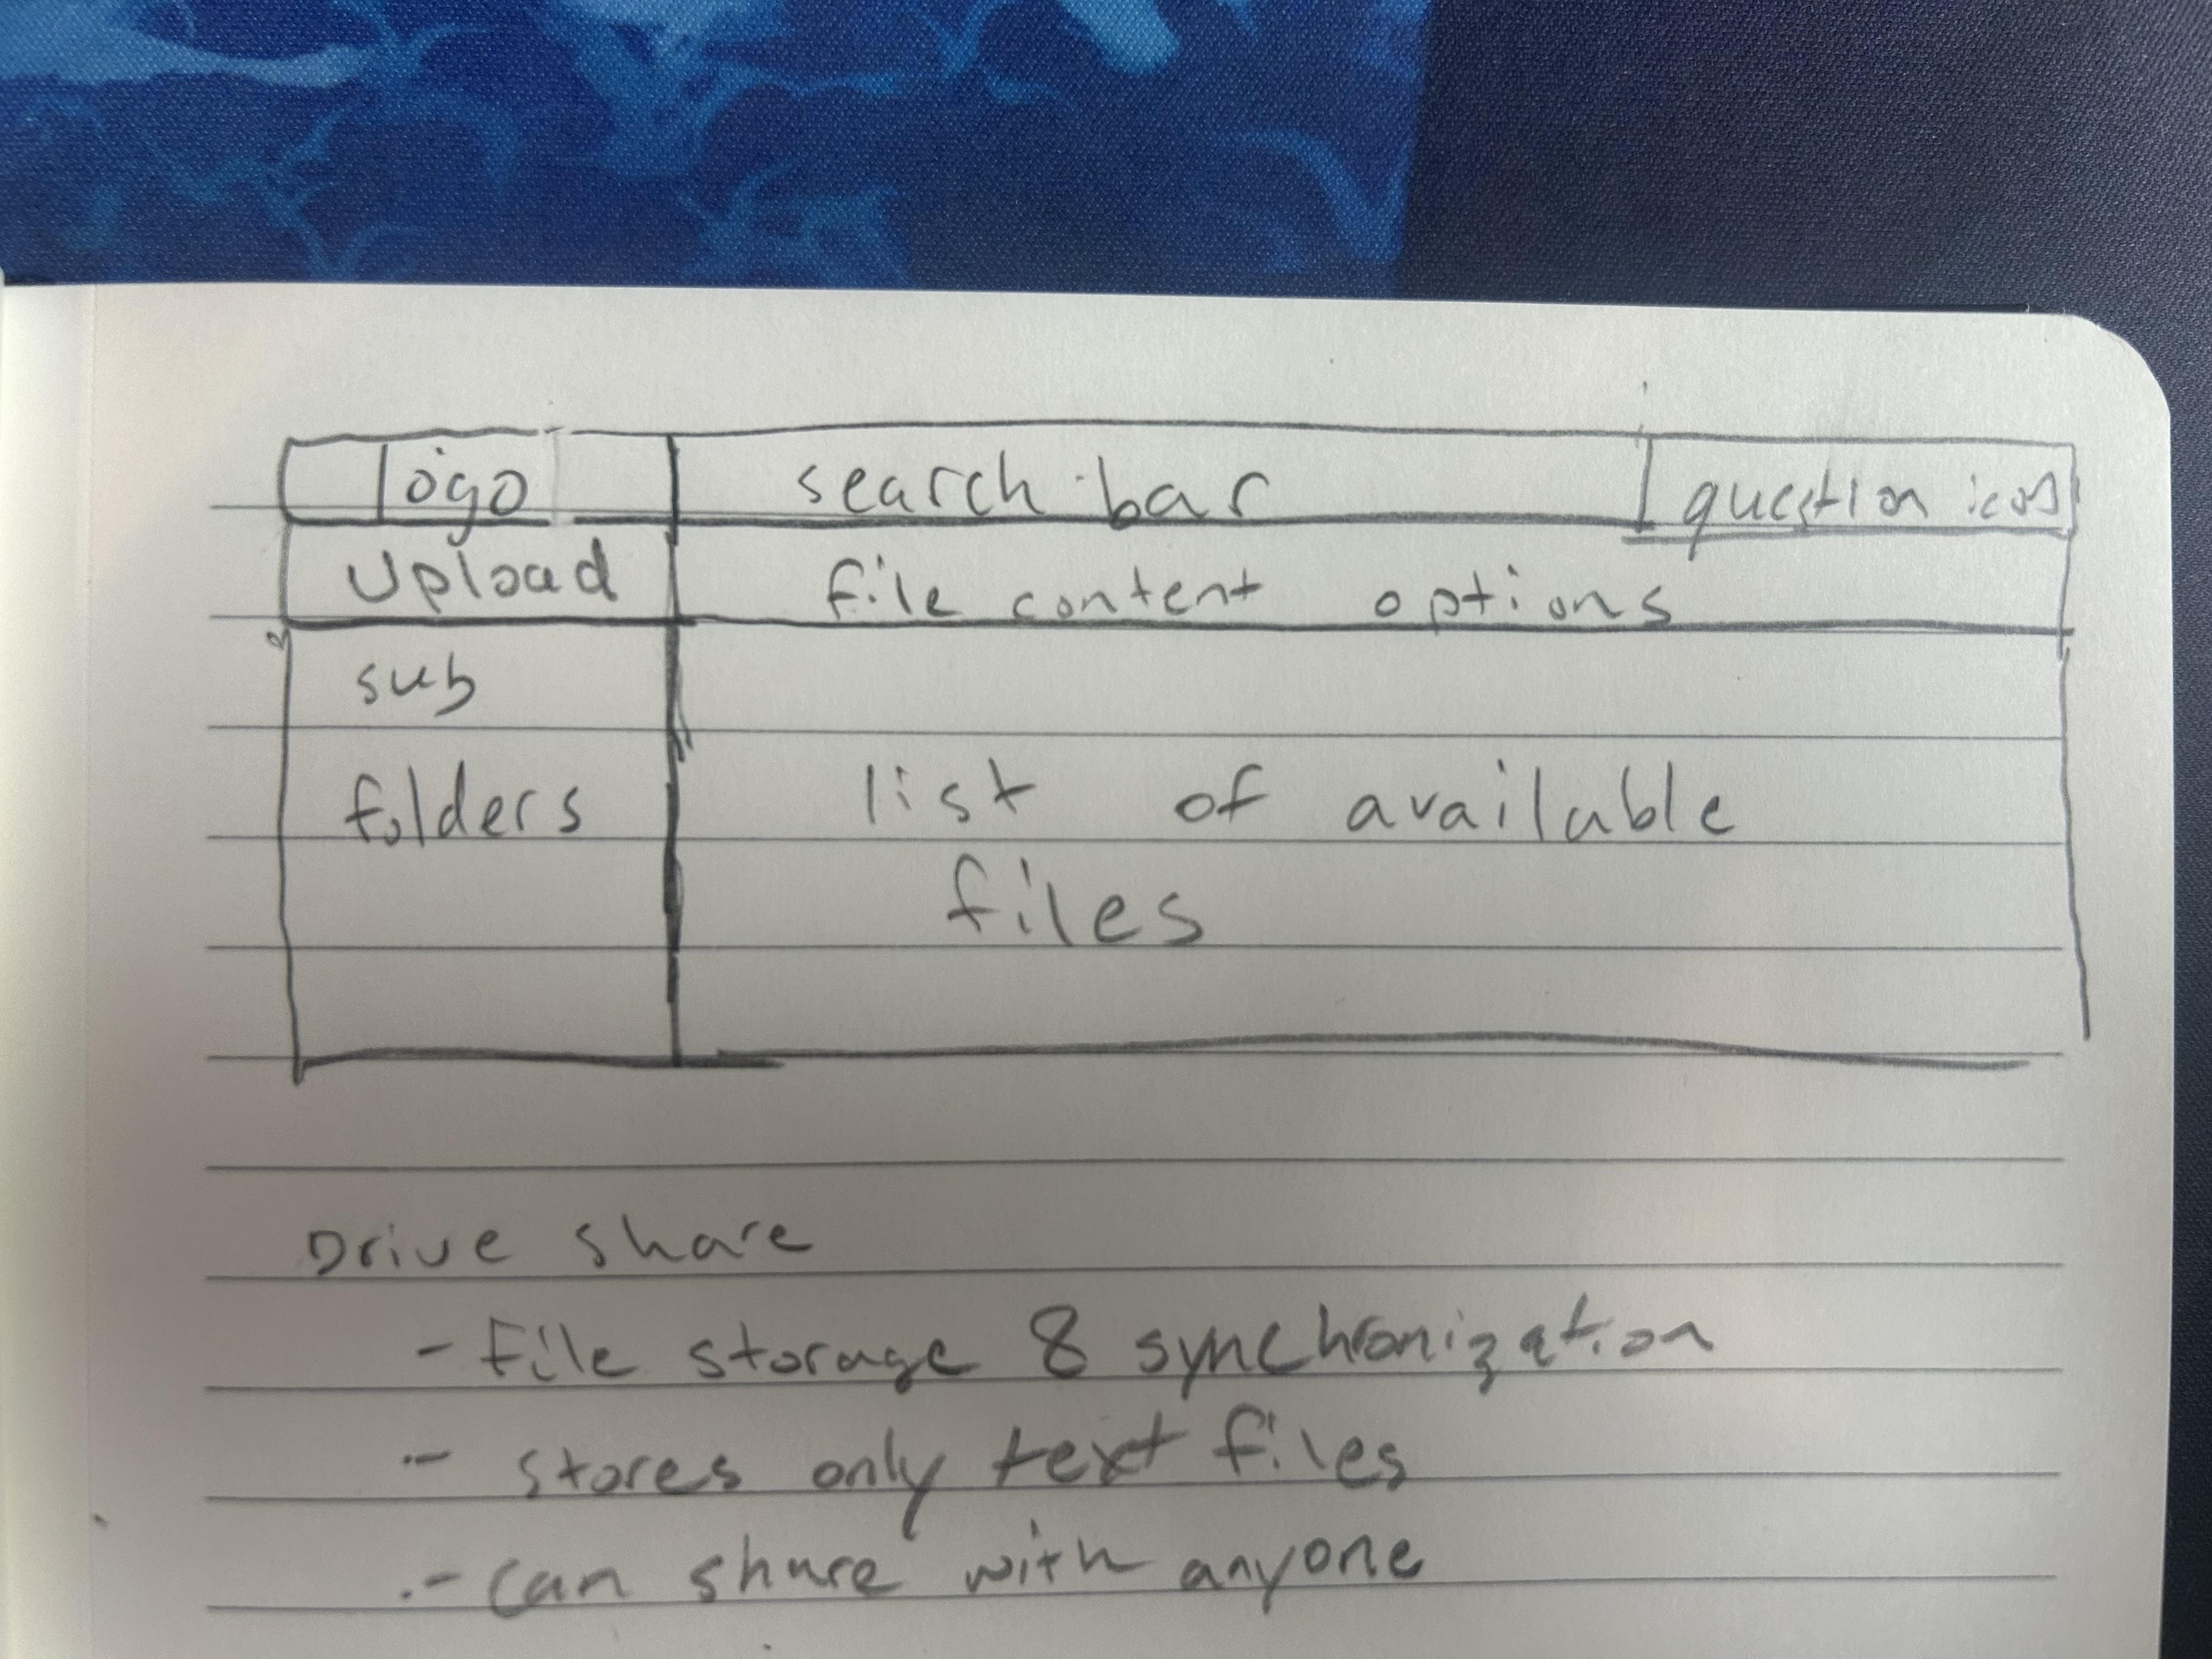 logo search bar question icon
Upload file content options
sub
folders list of available
files
Drive share
- File storage & synchronization
- stores only text files
- can share with anyone